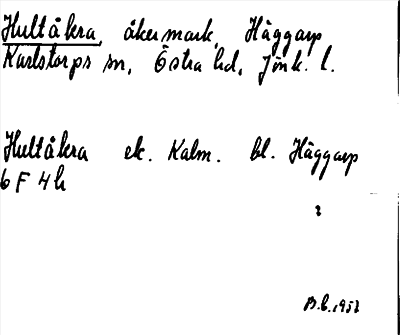 Hultåkra, åkermark, Häggarp
Karlstorps sn, Östra hd, Jönk. l.
Hultåkra ek. Kalm. bl. Häggarp
6 F 4 h